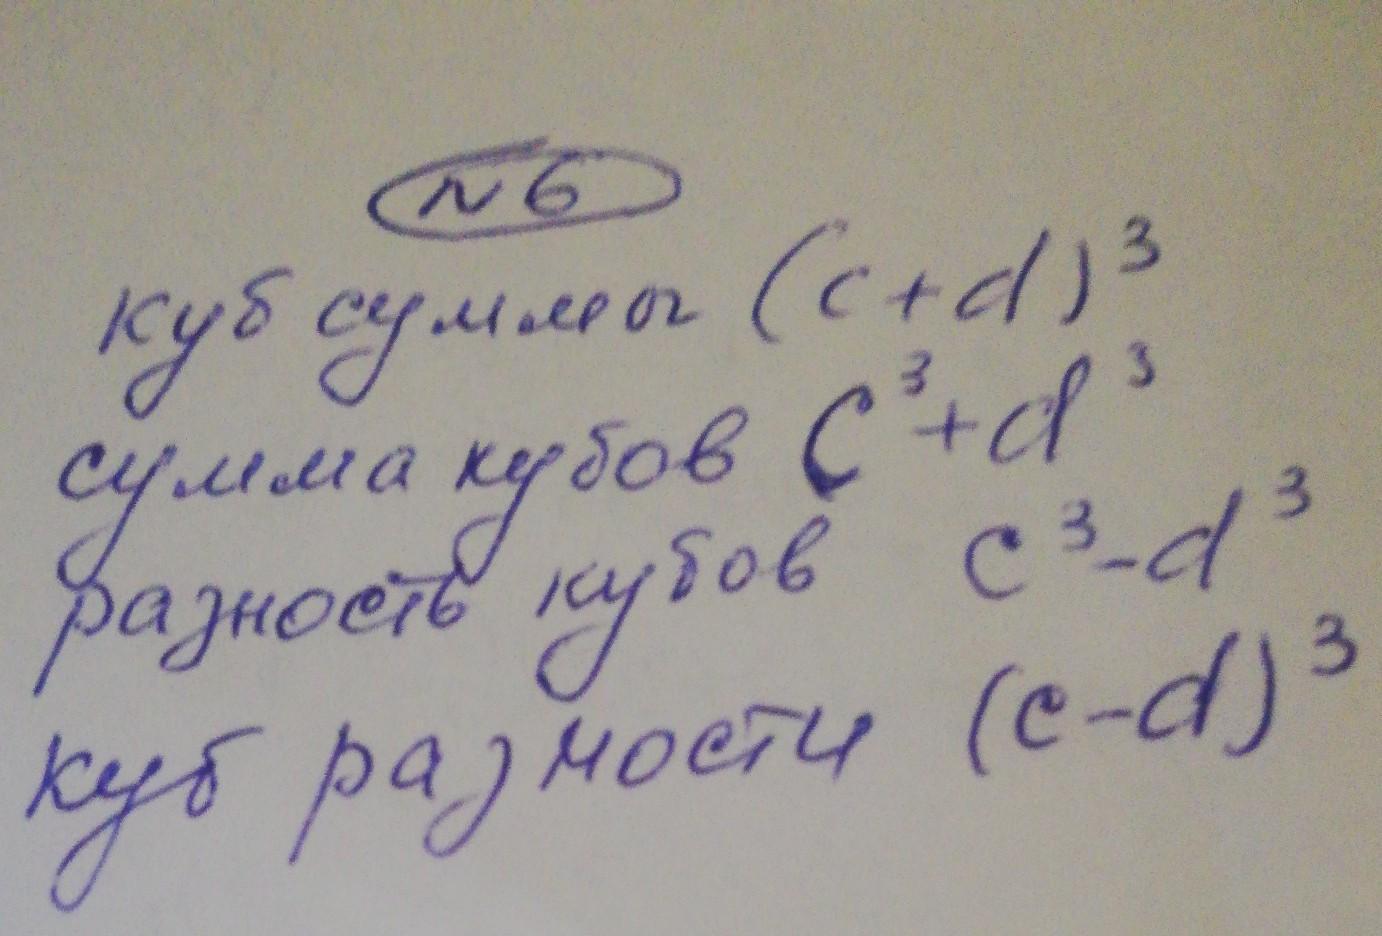 N6
куб суммы (c+d)³
сумма кубов c³+d³
разность кубов c³-d³
куб разности (c-d)³